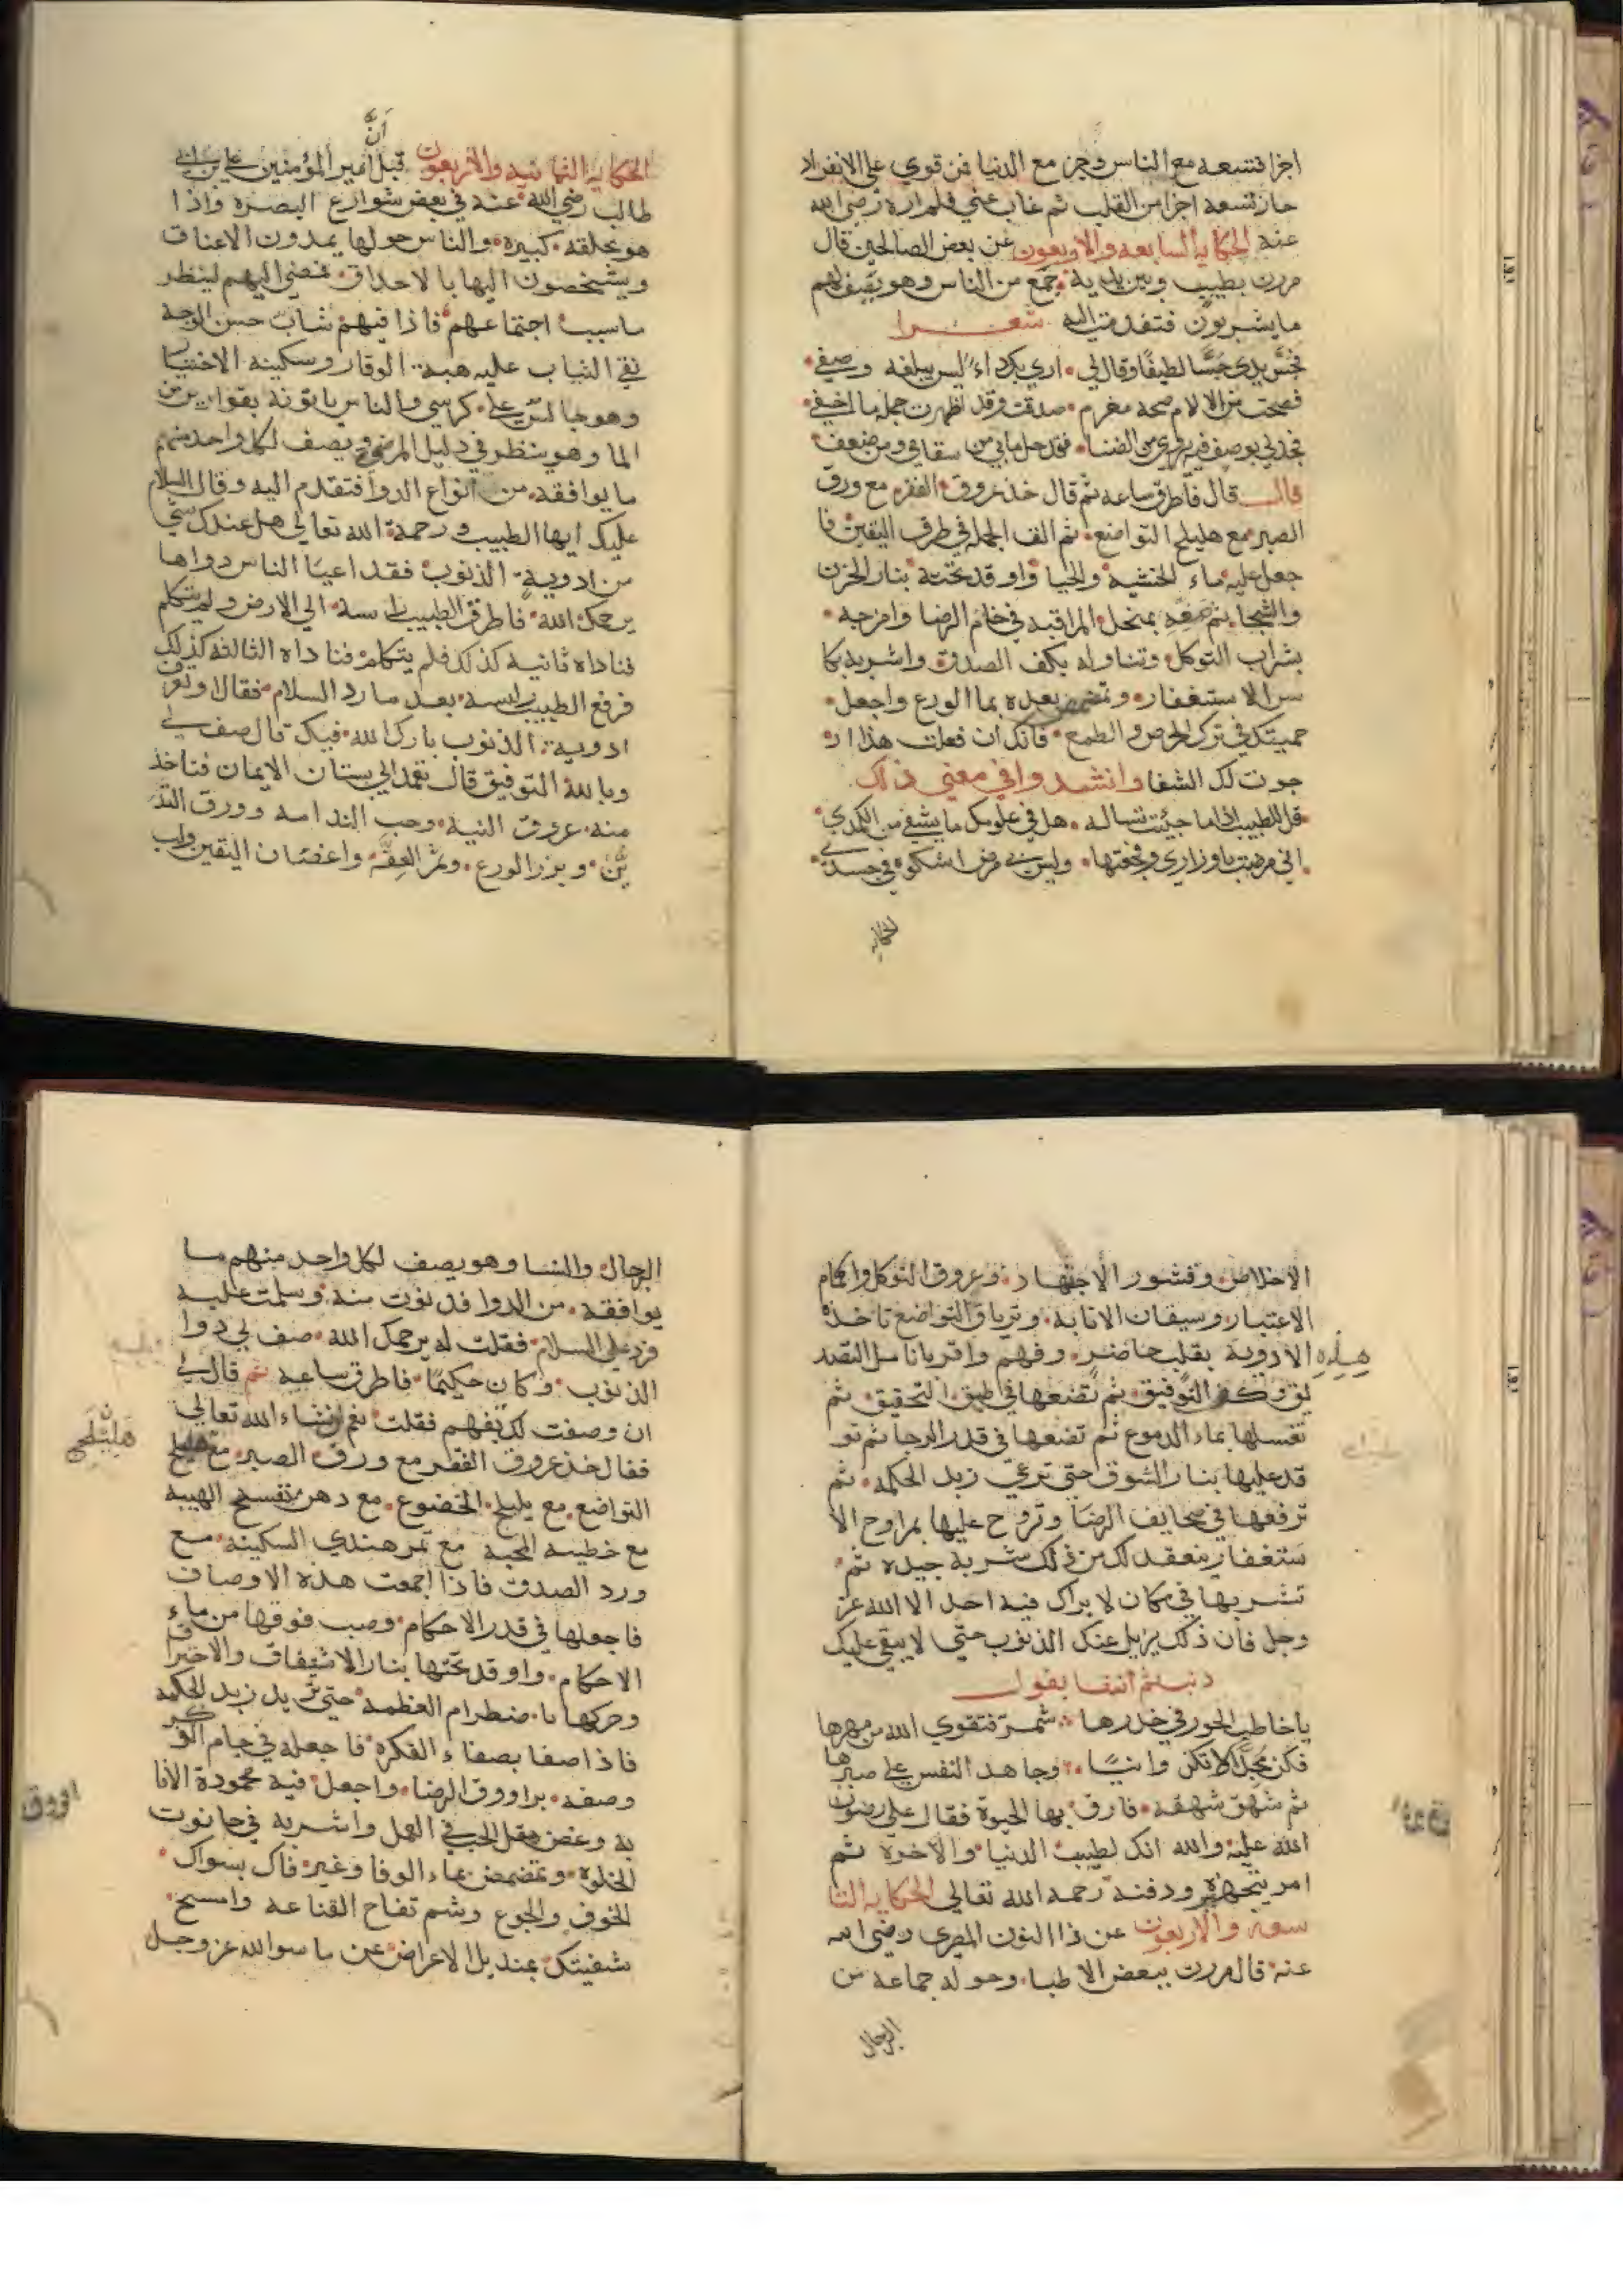 اجزا فتسعه مع الناس وجزء مع الدنيا فمن قوي على الانفراد
حاز تسعه اجزا من القلب ثم غاب عني فلم اره رضي الله
عنه الحكايه السابعه والاربعون عن بعض الصالحين قال
مررت بطبيب وبين يديه جمع من الناس وهو يصف لهم
ما يشربون فتقدمت اليه شعرا
فجس يدي جسا لطيفا وقال لي اري بك داء ليس يبلغه وصفي
فصحت من الالام صحه مغرم صدقت وقد اظهرت جملة ما اخفي
فجد لي بوصف فيه بروي من الضنا فقد حل ما بي من سقامي ومن ضعف
قال قال فاطرق ساعه ثم قال خذ عروق الفقر مع ورق
الصبر مع هليلج التواضع ثم الف الجمله في طرف اليقين فا
جعل عليه ماء الخشيه والحيا واوقد تحته بنار الحزن
والشجا ثم صفه بمنخل المراقبه في خام الرضا وامزجه
بشراب التوكل وتناوله بكف الصدق واشربه بكا
س الاستغفار وتمضمض بعده بما الورع واجعل
حميتك في ترك الحرص والطمع فانك ان فعلت هذا ار
جوت لك الشفا وانشدوا في معني ذلك
قل للطبيب اذا ما جئت تساله هل في علومك ما يشفي من الكمدي
اني مرضت باوزاري وقحتها وليس بي مرض اشكوه في جسدي
الحكايه
الحكايه الثامنيه والاربعون قيل ان امير المؤمنين علي بن ابي
طالب رضي الله عنه في بعض شوارع البصره واذا
هو بحلقه كبيره والناس حولها يمدون الاعناق
ويشخصون اليها بالاحداق فمضي اليهم لينظر
ما سبب اجتماعهم فاذا فيهم شاب حسن الوجه
نقي الثياب عليه هيبة الوقار وسكينه الاختيار
وهو جالس علي كرسي والناس ياتونه بقوارير من
الما وهو ينظر في دليل المرض ويصف لكل واحد منهم
ما يوافقه من انواع الدوا فتقدم اليه وقال السلام
عليك ايها الطبيب ورحمة الله تعالي هل عندك شي
من ادوية الذنوب فقد اعيا الناس دواها
يرحمك الله فاطرق الطبيب راسه الي الارض ولم يتكلم
فناداه ثانيه كذلك فلم يتكلم فناداه الثالثه كذلك
فرفع الطبيب راسه بعد ما رد السلام فقال او تعرف
ادوية الذنوب بارك الله فيك قال صف لي
وبالله التوفيق قال تعمد الي بستان الايمان فتاخذ
منه عروق النيه وحب الندامه وورق التد
بر وبزر الورع وثمر العفه واغصان اليقين ولب
الاخلاص وقشور الاجتهاد وعروق التوكل واكمام
الاعتبار وسيقان الانابه وترياق التواضع تاخذ
هذه الادوية بقلب حاضر وفهم وافر بانامل التصد
يق وكف التوفيق ثم تضعها في طبق التحقيق ثم
تغسلها بماء الدموع ثم تضعها في قدر الرجا ثم تو
قد عليها بنار الشوق حتي ترغي زبد الحكمه ثم
ترفعها في صحايف الرضا وتروح عليها بمراوح الا
ستغفار ينعقد لك من ذلك شربه جيده ثم
تشربها في مكان لا يراك فيه احد الا الله عز
وجل فان ذلك يزيل عنك الذنوب حتي لا يبقي عليك
ذنب ثم انشا يقول
يا خاطب الحور في خدرها شمر فتقوي الله من مهرها
فكن مجدا لا تكن وانيا وجاهد النفس علي صبرها
ثم شهق شهقه فارق بها الحيوة فقال علي رضوان
الله عليه والله انك لطبيب الدنيا والاخره ثم
امر بتجهيزه ودفنه رحمه الله تعالي الحكايه التا
سعه والاربعون عن ذا النون المصري رضي الله
عنه قال مررت ببعض الاطبا وحوله جماعه من
الرجال
الرجال والنسا وهو يصف لكل واحد منهم ما
يوافقه من الدوا فدنوت منه وسلمت عليه
فرد علي السلام فقلت له يرحمك الله صف لي دوا
الذنوب وكان حكيما فاطرق ساعه ثم قال لي
ان وصفت لك تفهم فقلت نعم ان شاء الله تعالي
فقال خذ عروق الفقر مع ورق الصبر مع هليلج
هليلج
التواضع مع بليلج الخضوع مع دهن بنفسج الهيبه
مع خطميه المحبه مع تمر هندي السكينه مع
ورد الصدق فاذا اجمعت هذه الاوصاف
فاجعلها في قدر الاحكام وصب فوقها من ماء
الاحكام واوقد تحتها بنار الاشفاق والاحتراق
وحركها باضطرام العظمه حتي تزيل زبد الحكمه
فاذا صفا بصفاء الفكره فاجعله في جام الذكر
وصفه براووق الرضا واجعل فيه محمودة الانا
به وغض مقل الحب في العمل واشربه في حانوت
الخلوة وتمضمض بماء الوفا وغير فاك بسواك
الخوف والجوع وشم تفاح القناعه وامسح
شفيتك بمنديل الاعراض عن ما سوا الله عز وجل